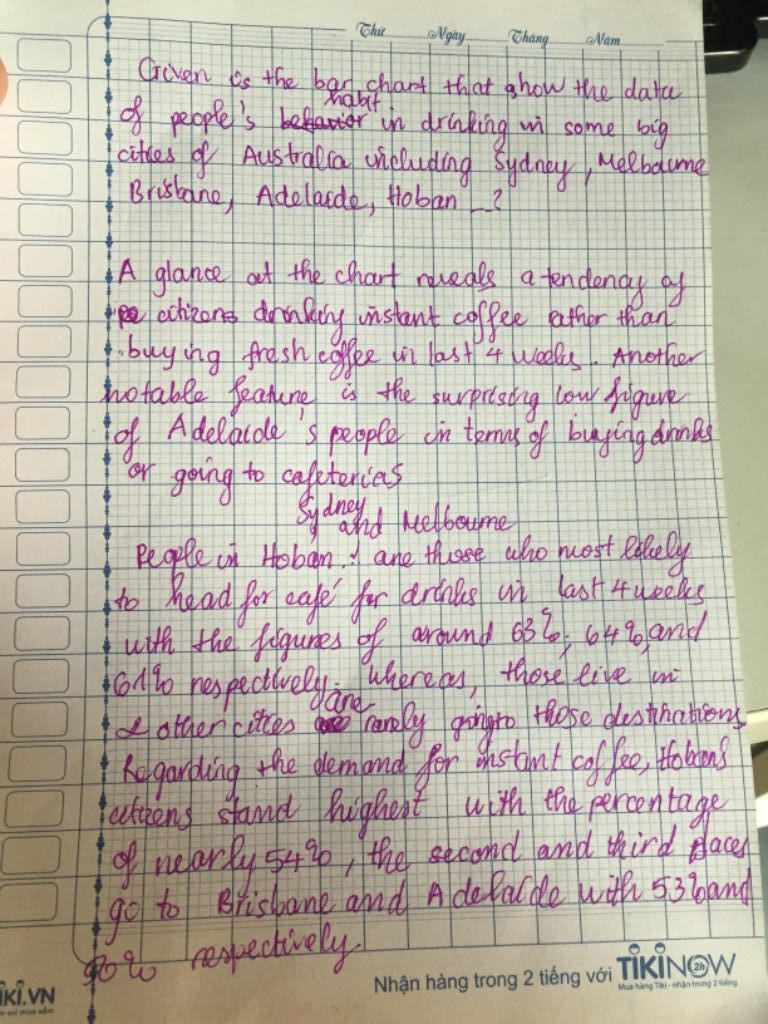 Thứ Ngày Tháng Năm
Given is the bar chart that show the data
habit
of people's behavior in drinking in some big
cities of Australia including Sydney, Melbourne
Brisbane, Adelaide, Hoban _ ?
A glance at the chart reveals a tendency of
pe citizens drinking instant coffee rather than
buying fresh coffee in last 4 weeks. Another
notable feature is the surprising low figure
of Adelaide's people in terms of buying drinks
or going to cafeterias
Sydney and Melbourne
People in Hoban are those who most likely
to head for café for drinks in last 4 weeks
with the figures of around 63%, 64%, and
61% respectively. whereas, those live in
are
2 other cities rarely going to those destinations
Regarding the demand for instant coffee, Hoban's
citizens stand highest with the percentage
of nearly 54%, the second and third places
go to Brisbane and Adelaide with 53% and
% respectively.
IKI.VN
Nhận hàng trong 2 tiếng với TIKINOW 2h
Mua hàng Tiki - nhận trong 2 tiếng